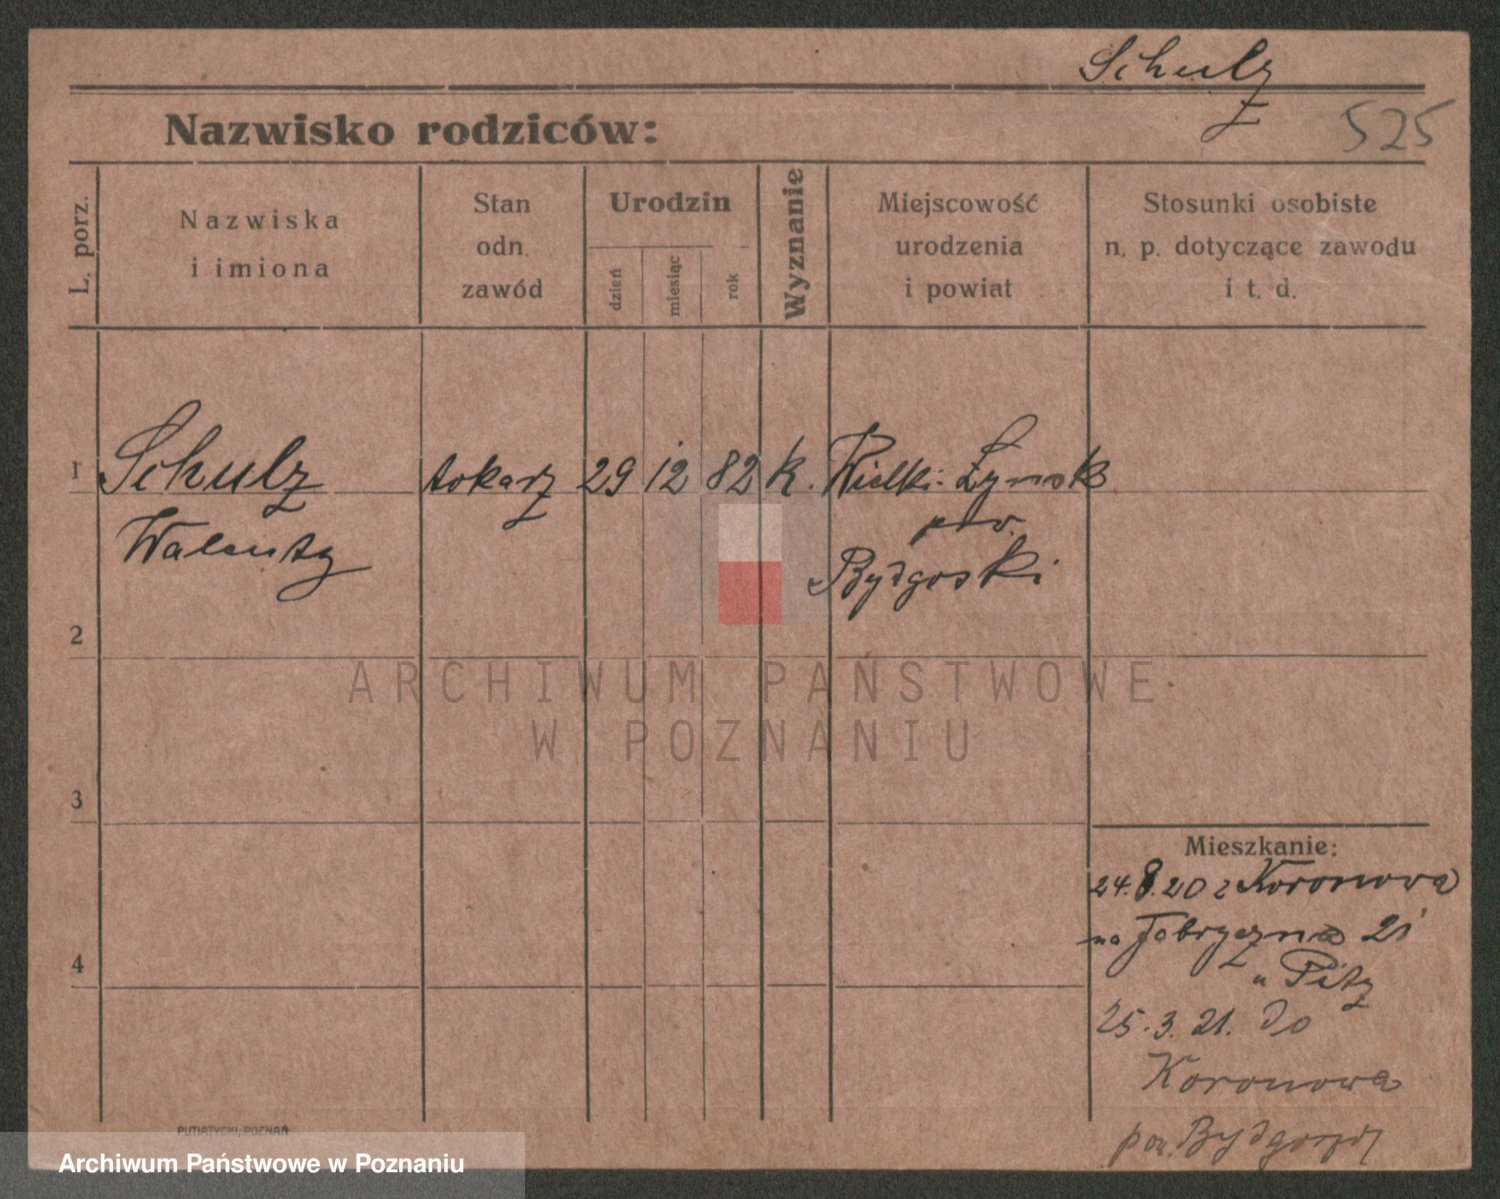 Schulz
525
Nazwisko rodziców:
L. porz.
Nazwiska
i imiona
Stan
odn.
zawód
Urodzin
dzień
miesiąc
rok
Wyznanie
Miejscowość
urodzenia
i powiat
Stosunki osobiste
n. p. dotyczące zawodu
i t. d.
1 Schulz tokarz 29 12 82 k. Wielki
Walenty pow.
Bydgoski
2
ARCHIWUM PAŃSTWOWE
W POZNANIU
3
Mieszkanie:
24.8.20 z Koronowa
na 21
4
u
25.3.21. do
Koronowa
pow.
PUTIATYCKI, POZNAŃ
Archiwum Państwowe w Poznaniu